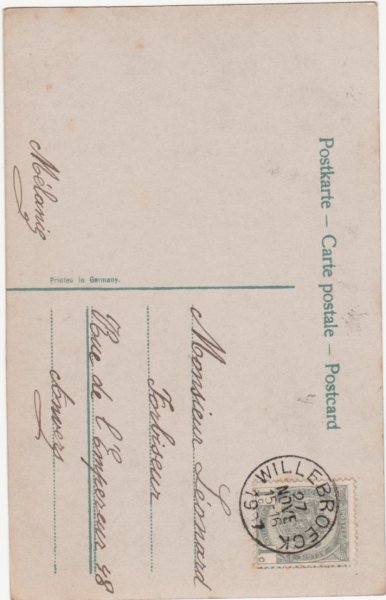 Postkarte – Carte postale – Postcard
Mélanie
Printed in Germany.
Monsieur Léonard
Rue de l'Empereur 48
Anvers
WILLEBROECK
27
NOVE
15-16